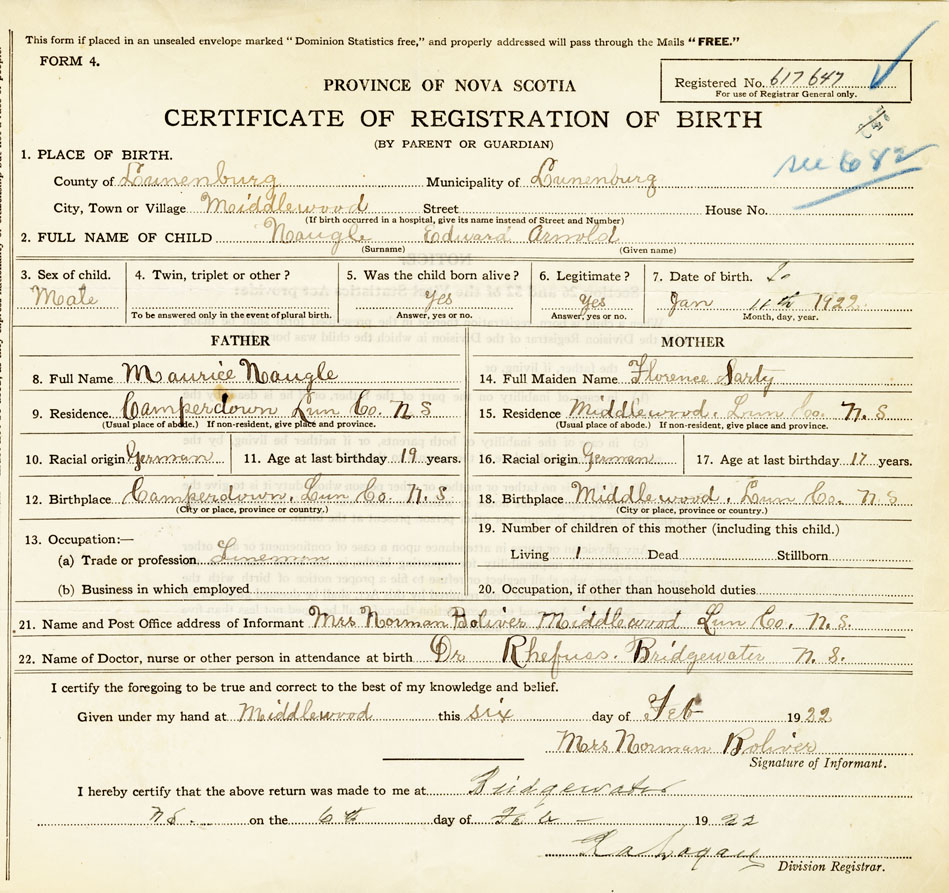 This form if placed in an unsealed envelope marked "Dominion Statistics free," and properly addressed will pass through the Mails "FREE."
FORM 4.
Registered No. 617647
For use of Registrar General only.
PROVINCE OF NOVA SCOTIA
CERTIFICATE OF REGISTRATION OF BIRTH
(BY PARENT OR GUARDIAN)
see 682
1. PLACE OF BIRTH.
County of Lunenburg Municipality of Lunenburg
City, Town or Village Middlewood Street House No.
(If birth occurred in a hospital, give its name instead of Street and Number)
2. FULL NAME OF CHILD Naugle Edward Arnold
(Surname) (Given name)
3. Sex of child. 4. Twin, triplet or other? 5. Was the child born alive? 6. Legitimate? 7. Date of birth.
Male Yes Yes Jan 11th 1922
To be answered only in the event of plural birth. Answer, yes or no. Answer, yes or no. Month, day, year.
FATHER MOTHER
8. Full Name Maurice Naugle 14. Full Maiden Name Florence Sarty
9. Residence. Camperdown Lun Co. N S 15. Residence Middlewood. Lun Co. N. S
(Usual place of abode.) If non-resident, give place and province. (Usual place of abode.) If non-resident, give place and province.
10. Racial origin German 11. Age at last birthday 19 years. 16. Racial origin German 17. Age at last birthday 17 years.
12. Birthplace Camperdown. Lun Co. N. S 18. Birthplace Middlewood. Lun Co. N S
(City or place, province or country.) (City or place, province or country.)
19. Number of children of this mother (including this child.)
13. Occupation:—
Living 1 Dead Stillborn
(a) Trade or profession Lineman
(b) Business in which employed 20. Occupation, if other than household duties
21. Name and Post Office address of Informant Mrs Norman Boliver Middlewood Lun Co. N. S.
22. Name of Doctor, nurse or other person in attendance at birth Dr Rhefuss. Bridgewater N. S.
I certify the foregoing to be true and correct to the best of my knowledge and belief.
Given under my hand at Middlewood this six day of Feb 1922
Mrs Norman Boliver
Signature of Informant.
I hereby certify that the above return was made to me at Bridgewater
N S. on the 6th day of Feb 1922
Division Registrar.